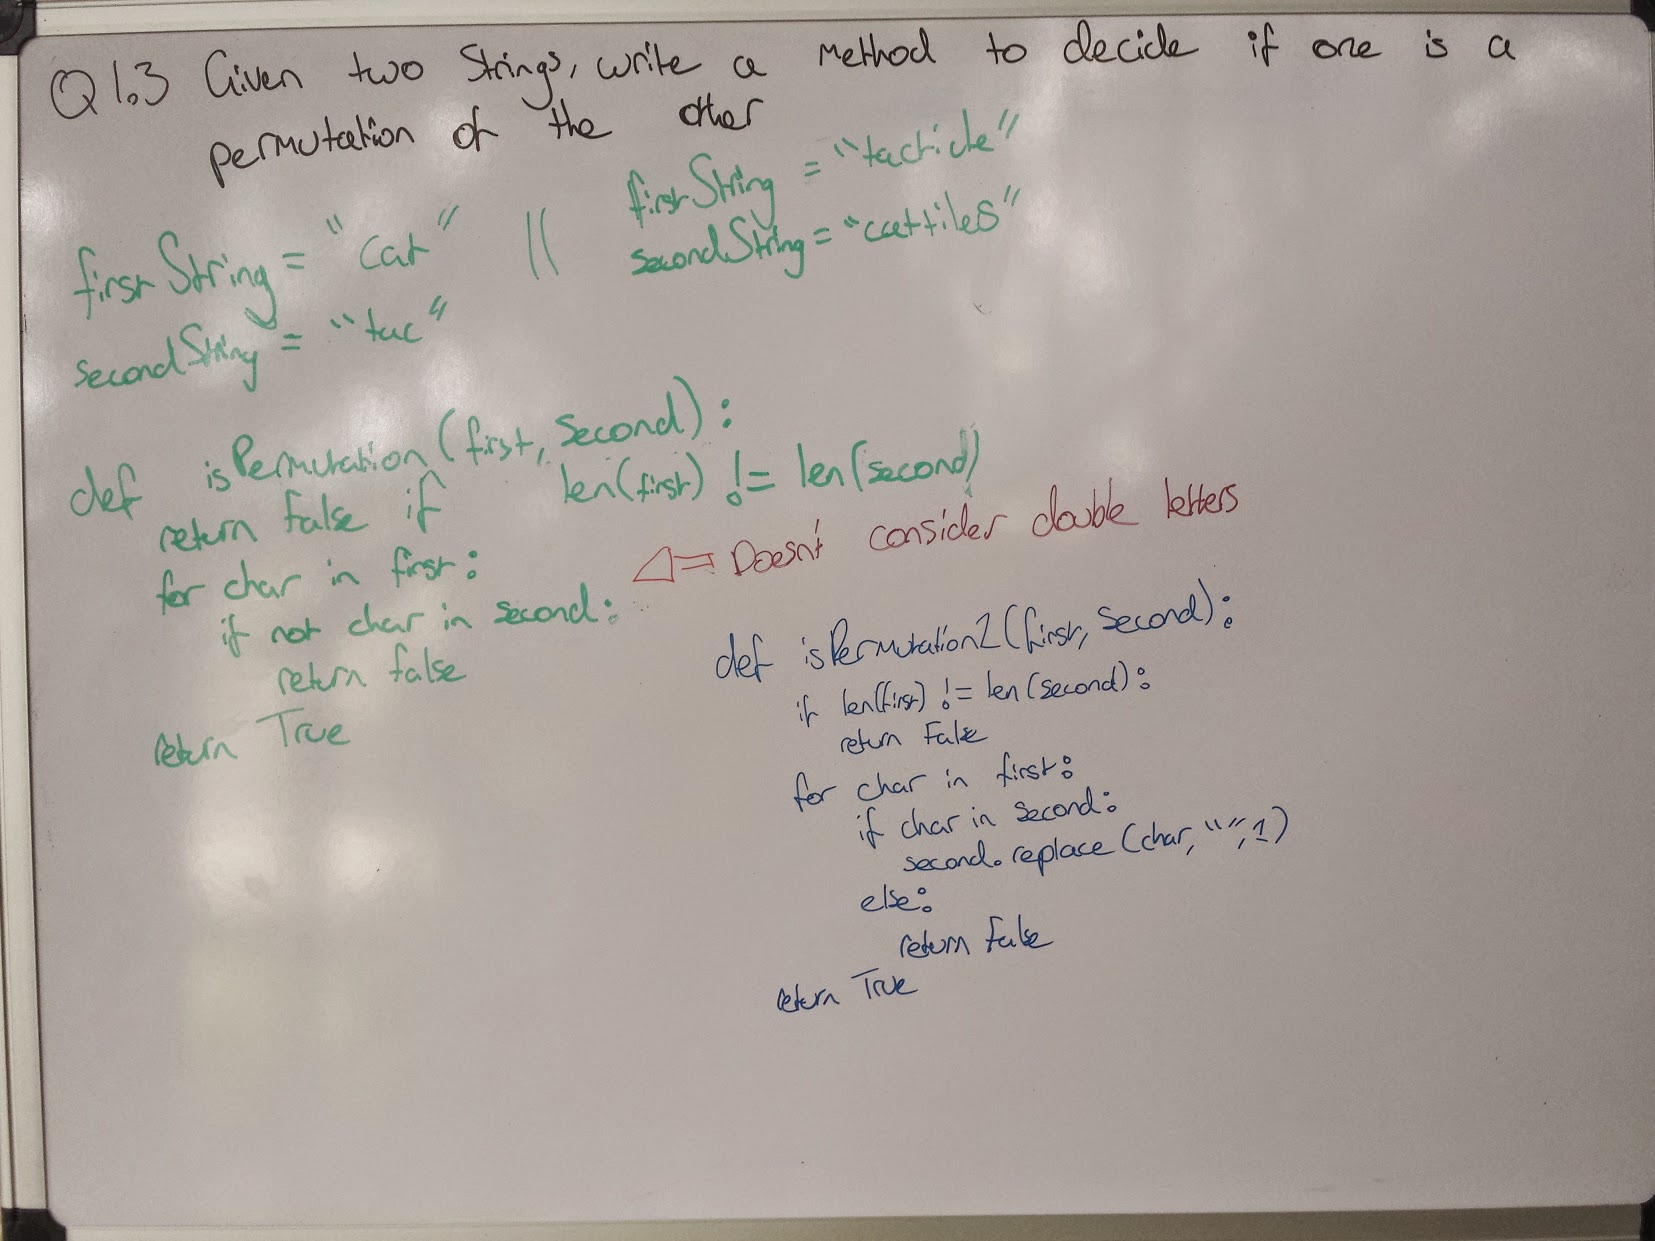 Q1.3 Given two Strings, write a method to decide if one is a
permutation of the other
firstString = "cat" || firstString = "tacticle"
secondString = "tac" secondString = "cattiles"
def isPermutation(first, second):
return False if len(first) != len(second)
for char in first:
if not char in second:
return false
return True
<= Doesn't consider double letters
def isPermutation2(first, second):
if len(first) != len(second):
return False
for char in first:
if char in second:
second.replace(char, "", 1)
else:
return False
return True